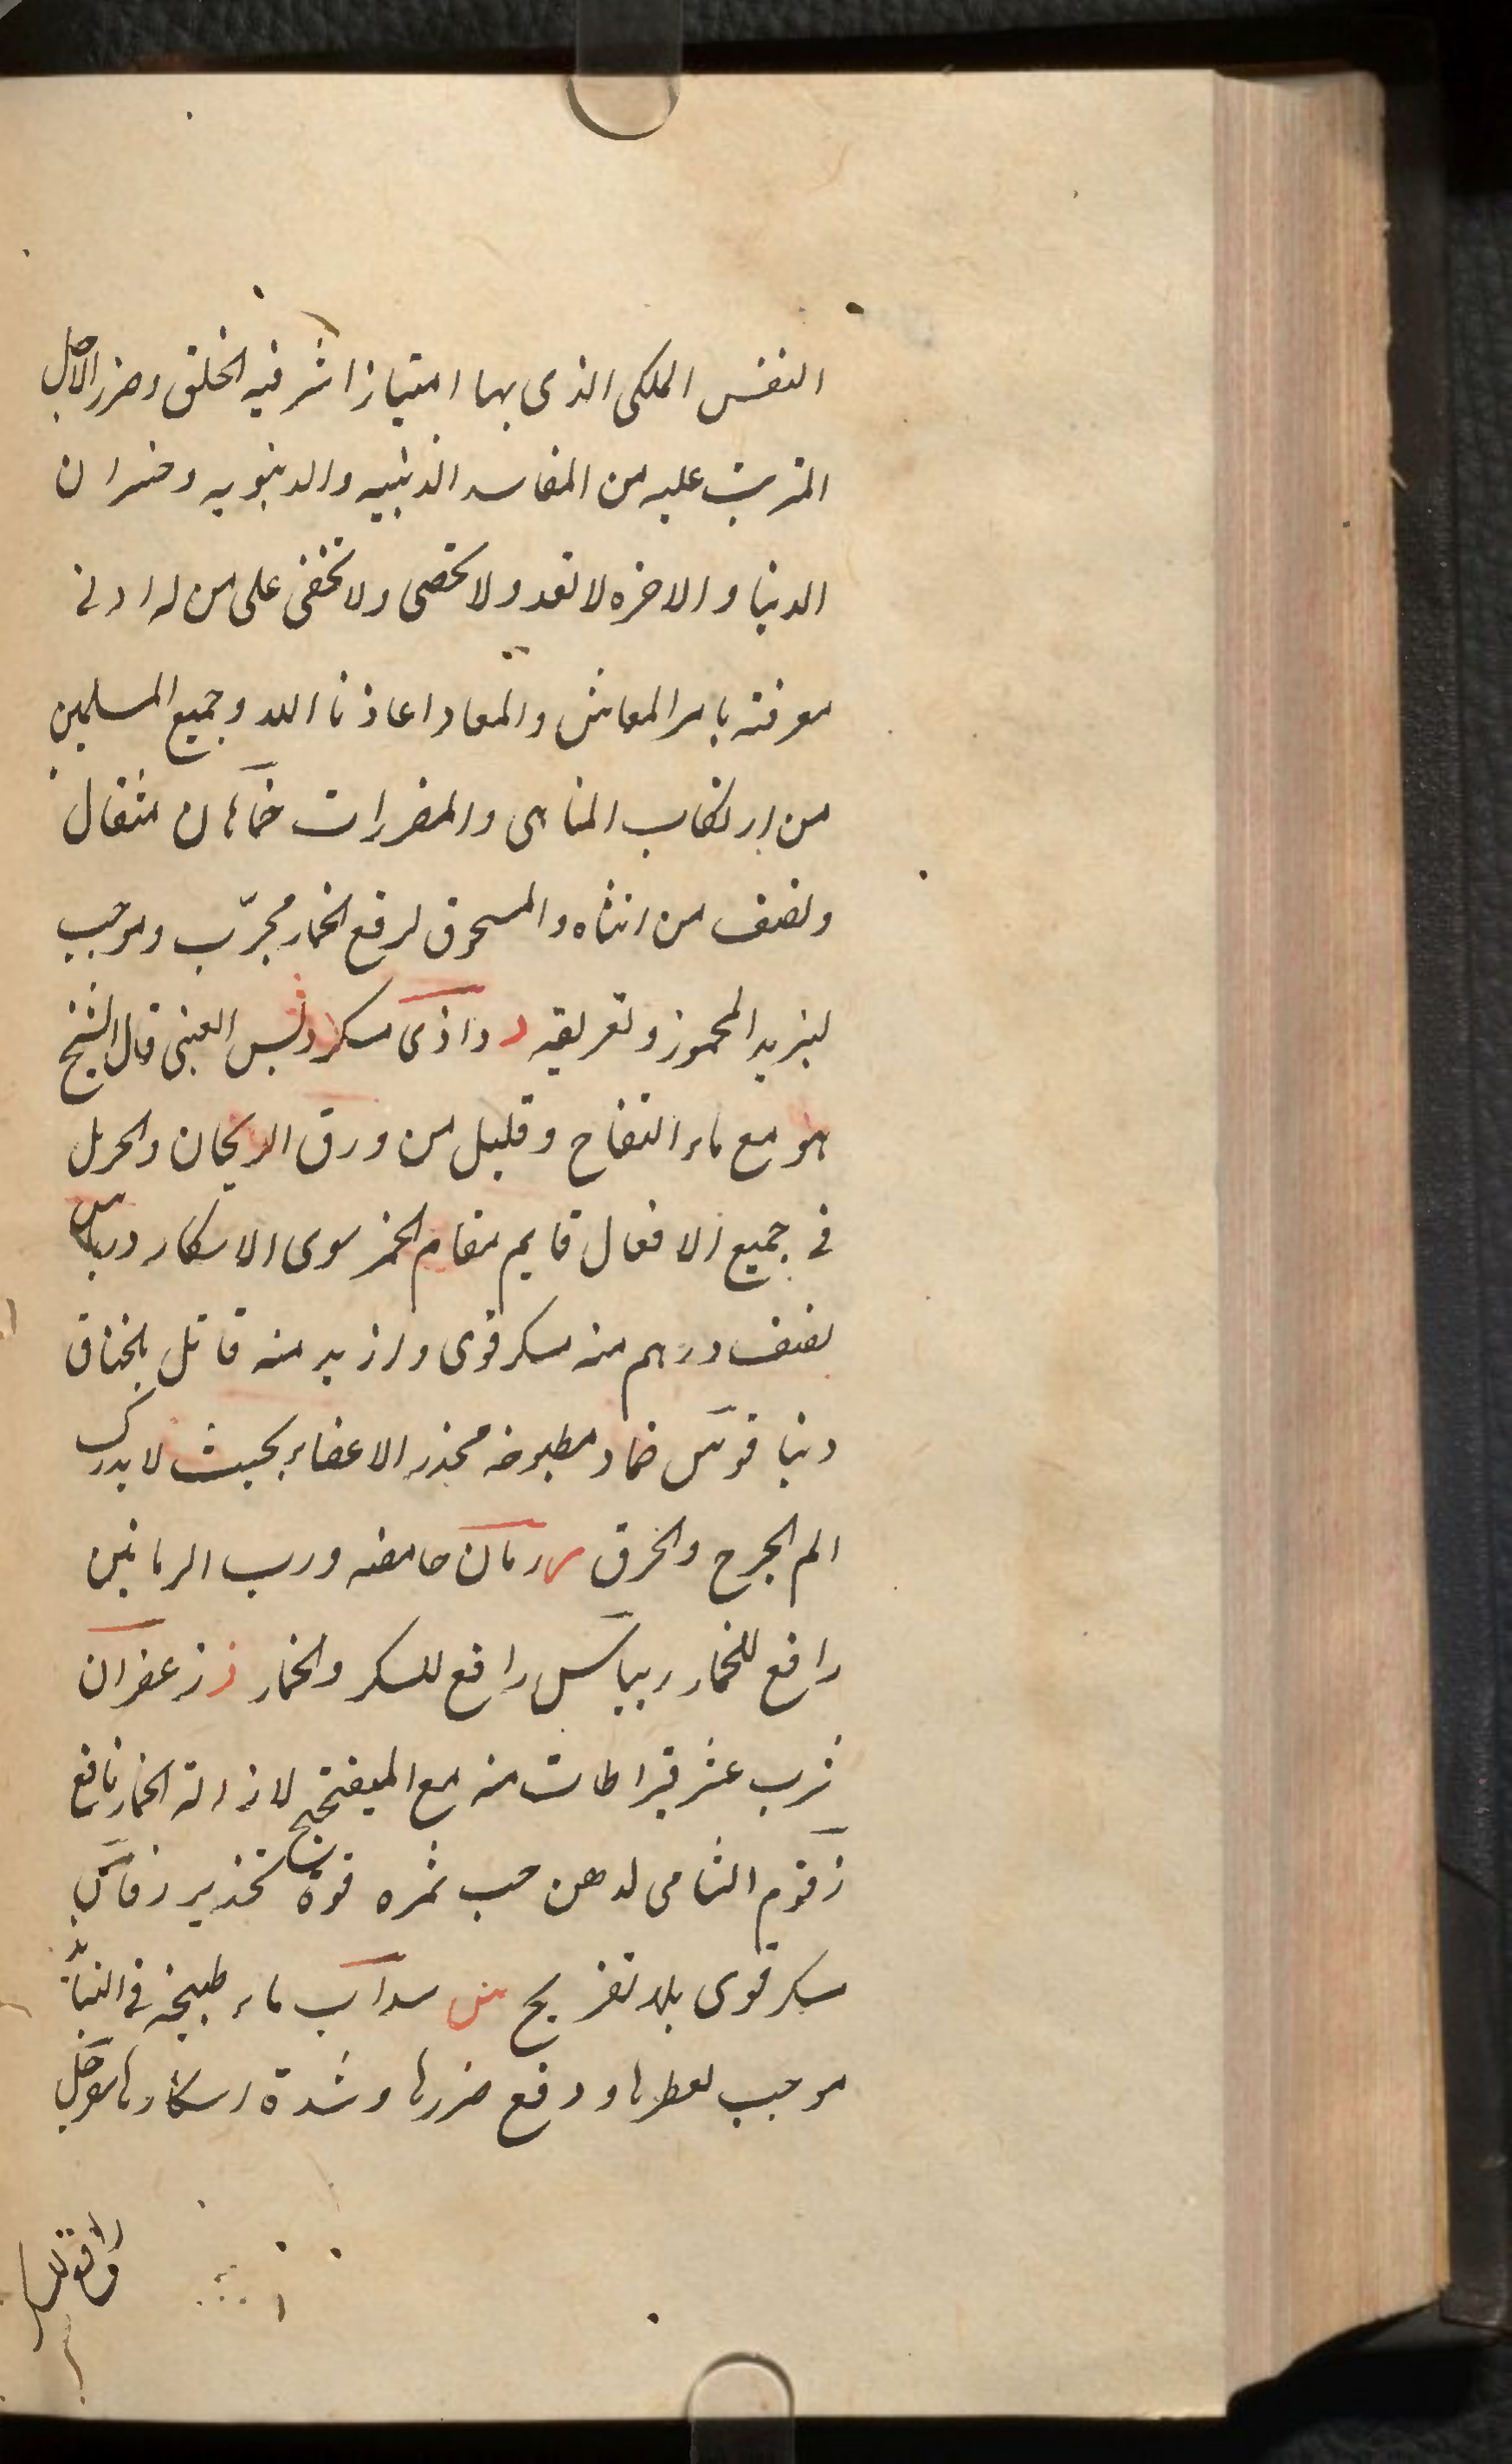 النفس الملكى الذى بها امتياز اشرفيه الخلق وضرر الاكل
المترتب عليه من المفاسد الدينيه والدنيويه وخسران
الدنيا والاخره لا تعد ولا تحصى ولا تخفى على من له ادنى
معرفته بامر المعاش والمعاد اعاذنا الله وجميع المسلمين
من ارتكاب المناهى والمضررات خماهان مثقال
ونصف من انثاه والمسحوق لرفع الخمار مجرّب وموجب
لتبريد المخمور وتعريقه د داذى مسكر دبس العنبى قال الشيخ
هو مع ماء التفاح وقليل من ورق الريحان والحرمل
فى جميع الافعال قايم مقام الخمر سوى الاسكار
نصف درهم منه مسكر قوى وازيد منه قاتل بالخناق
دنيا قوس ضماد مطبوخه مخدر الاعضاء بحيث لا يدرك
الم الجرح والخرق ر رمان حامضه ورب الرمانين
رافع للخمار ريباس رافع للسكر والخمار ز زعفران
شرب عشر قيراطات منه مع الميفختج لازالة الخمار نافع
زقوم الشامى لدهن حب ثمره قوة تخدير
سكر قوى بلا تفريح س سداب ماء طبيخه فى
موجب لعطرها ودفع ضررها وشدة اسكارها